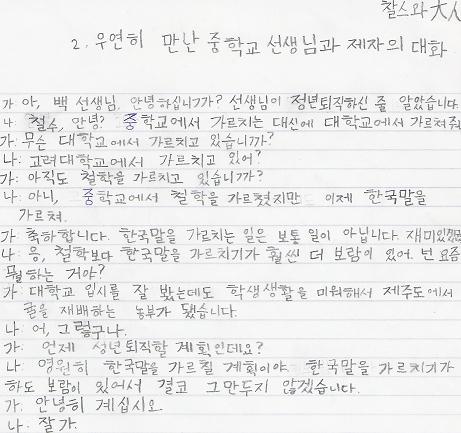 찰스와 大人
2. 우연히 만난 중학교 선생님과 제자의 대화
가: 아, 백 선생님, 안녕하십니까? 선생님이 정년퇴직하신 줄 알았습니다.
나: 철수, 안녕? 중학교에서 가르치는 대신에 대학교에서 가르쳐줘
가: 무슨 대학교에서 가르치고 있습니까?
나: 고려대학교에서 가르치고 있어?
가: 아직도 철학을 가르치고 있습니까?
나: 아니, 중학교에서 철학을 가르쳤지만 이제 한국말을
가르쳐.
가: 축하합니다. 한국말을 가르치는 일은 보통 일이 아닙니다.
나: 응, 철학보다 한국말을 가르치기가 훨씬 더 보람이 있어. 넌 요즘
뭘하는 거야?
가: 대학교 입시를 잘 봤는데도 학생생활을 미워해서 제주도에서
귤을 재배하는 농부가 됐습니다.
나: 어, 그렇구나.
가: 언제 정년퇴직할 계획인데요?
나: 영원히 한국말을 가르칠 계획이야. 한국말을 가르치기가
하도 보람이 있어서 결코 그만두지 않겠습니다.
가: 안녕히 계십시오.
나: 잘 가.